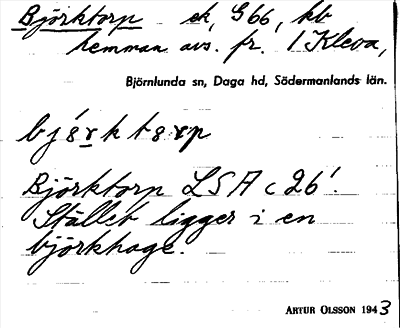 Björktorp ek, G66, kb
hemman avs. fr. 1 Kleva,
Björnlunda sn, Daga hd, Södermanlands län.
bjö́rktorp
Björktorp LSA c 26'.
Stället ligger i en
björkhage.
ARTUR OLSSON 1943